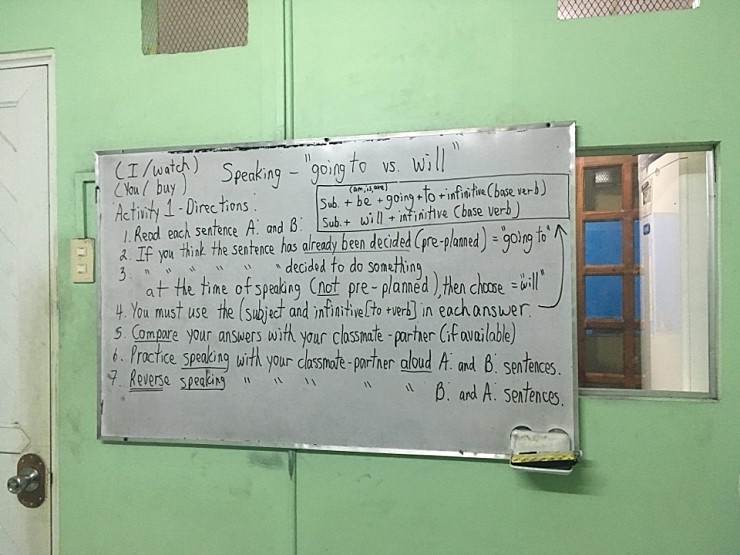 (I/watch) Speaking - "going to vs. will"
(You/buy)
Activity 1 - Directions:
(am, is, are)
Sub. + be + going + to + infinitive (base verb)
Sub. + will + infinitive (base verb)
1. Read each sentence A: and B:
2. If you think the sentence has already been decided (pre-planned) = "going to"
3. " " " " " " decided to do something
at the time of speaking (not pre-planned), then choose = "will"
4. You must use the (subject and infinitive [to + verb] in each answer.
5. Compare your answers with your classmate-partner (if available)
6. Practice speaking with your classmate-partner aloud A: and B: sentences.
7. Reverse speaking " " " " " B: and A: sentences.